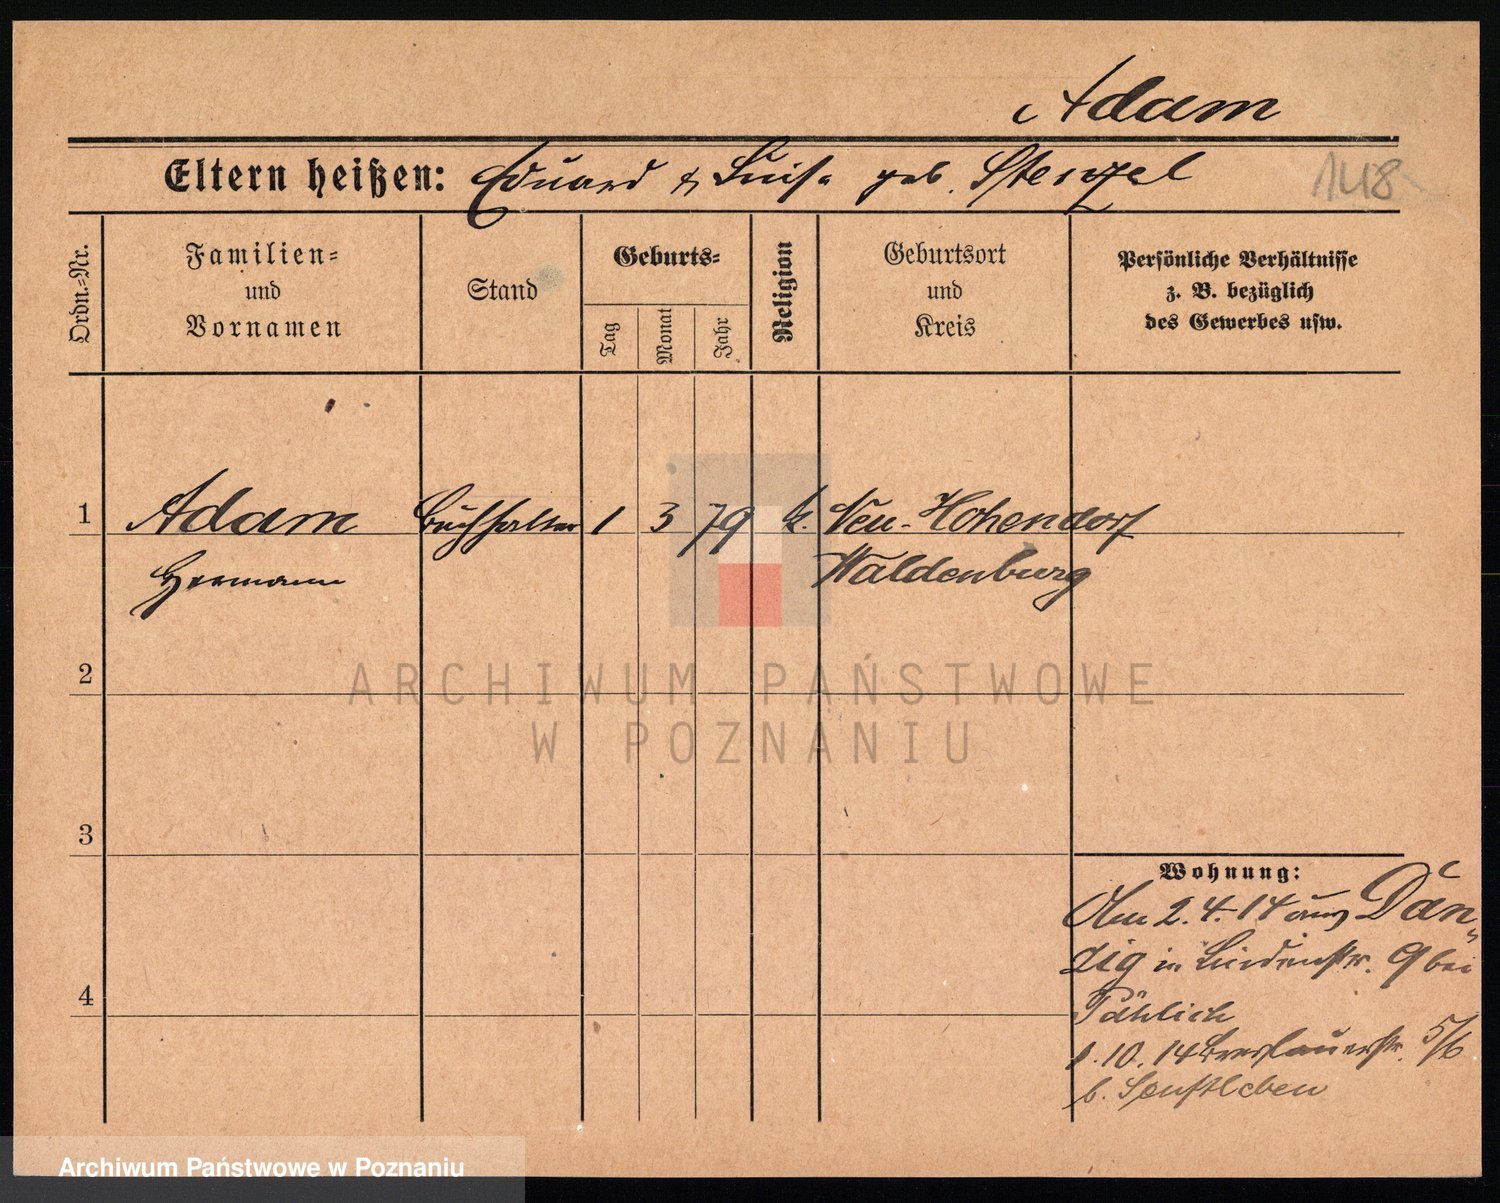 Adam
Eltern heißen: Eduard & Luise geb. Stenzel
148
Ordn.-Nr.
Familien-
und
Vornamen
Stand
Geburts-
Tag
Monat
Jahr
Religion
Geburtsort
und
Kreis
Persönliche Verhältnisse
z. B. bezüglich
des Gewerbes usw.
1 Adam Buchhalter 1 3 79 k. Neu-Hohendorf
Hermann Waldenburg
2
ARCHIWUM PAŃSTWOWE
W POZNANIU
3
Wohnung:
Am 2.4.14 aus Dan-
zig in Lindenstr. 9 bei
4
Pählich
1.10.14 Breslauerstr. 5/6
b. Senftleben
Archiwum Państwowe w Poznaniu